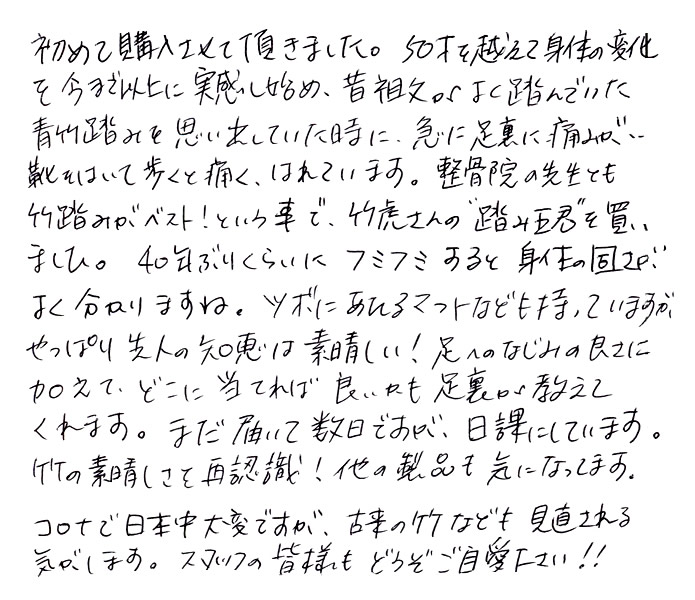 初めて購入させて頂きました。50才を越えて身体の変化
を今まで以上に実感し始め、昔祖父がよく踏んでいた
青竹踏みを思い出していた時に、急に足裏に痛みが…
靴をはいて歩くと痛く、はれています。整骨院の先生とも
竹踏みがベスト!という事で、竹虎さんの"踏み王君"を買い
ました。40年ぶりくらいにフミフミすると身体の固さが
よく分かりますね。ツボにあたるマットなども持っていますが
やっぱり先人の知恵は素晴しい!足へのなじみの良さに
加えて、どこに当てれば良いかも足裏が教えて
くれます。まだ届いて数日ですが、日課にしています。
竹の素晴しさを再認識!他の製品も気になってます。
コロナで日本中大変ですが、古来の竹なども見直される
気がします。スタッフの皆様もどうぞご自愛下さい!!